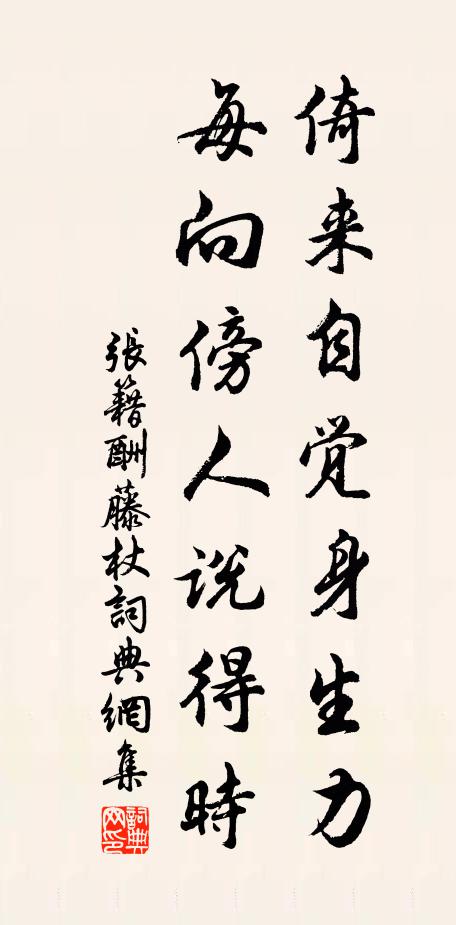 倚来自觉身生力
每向傍人说得時
張籍酬藤杖詞典網集
詞典
网印